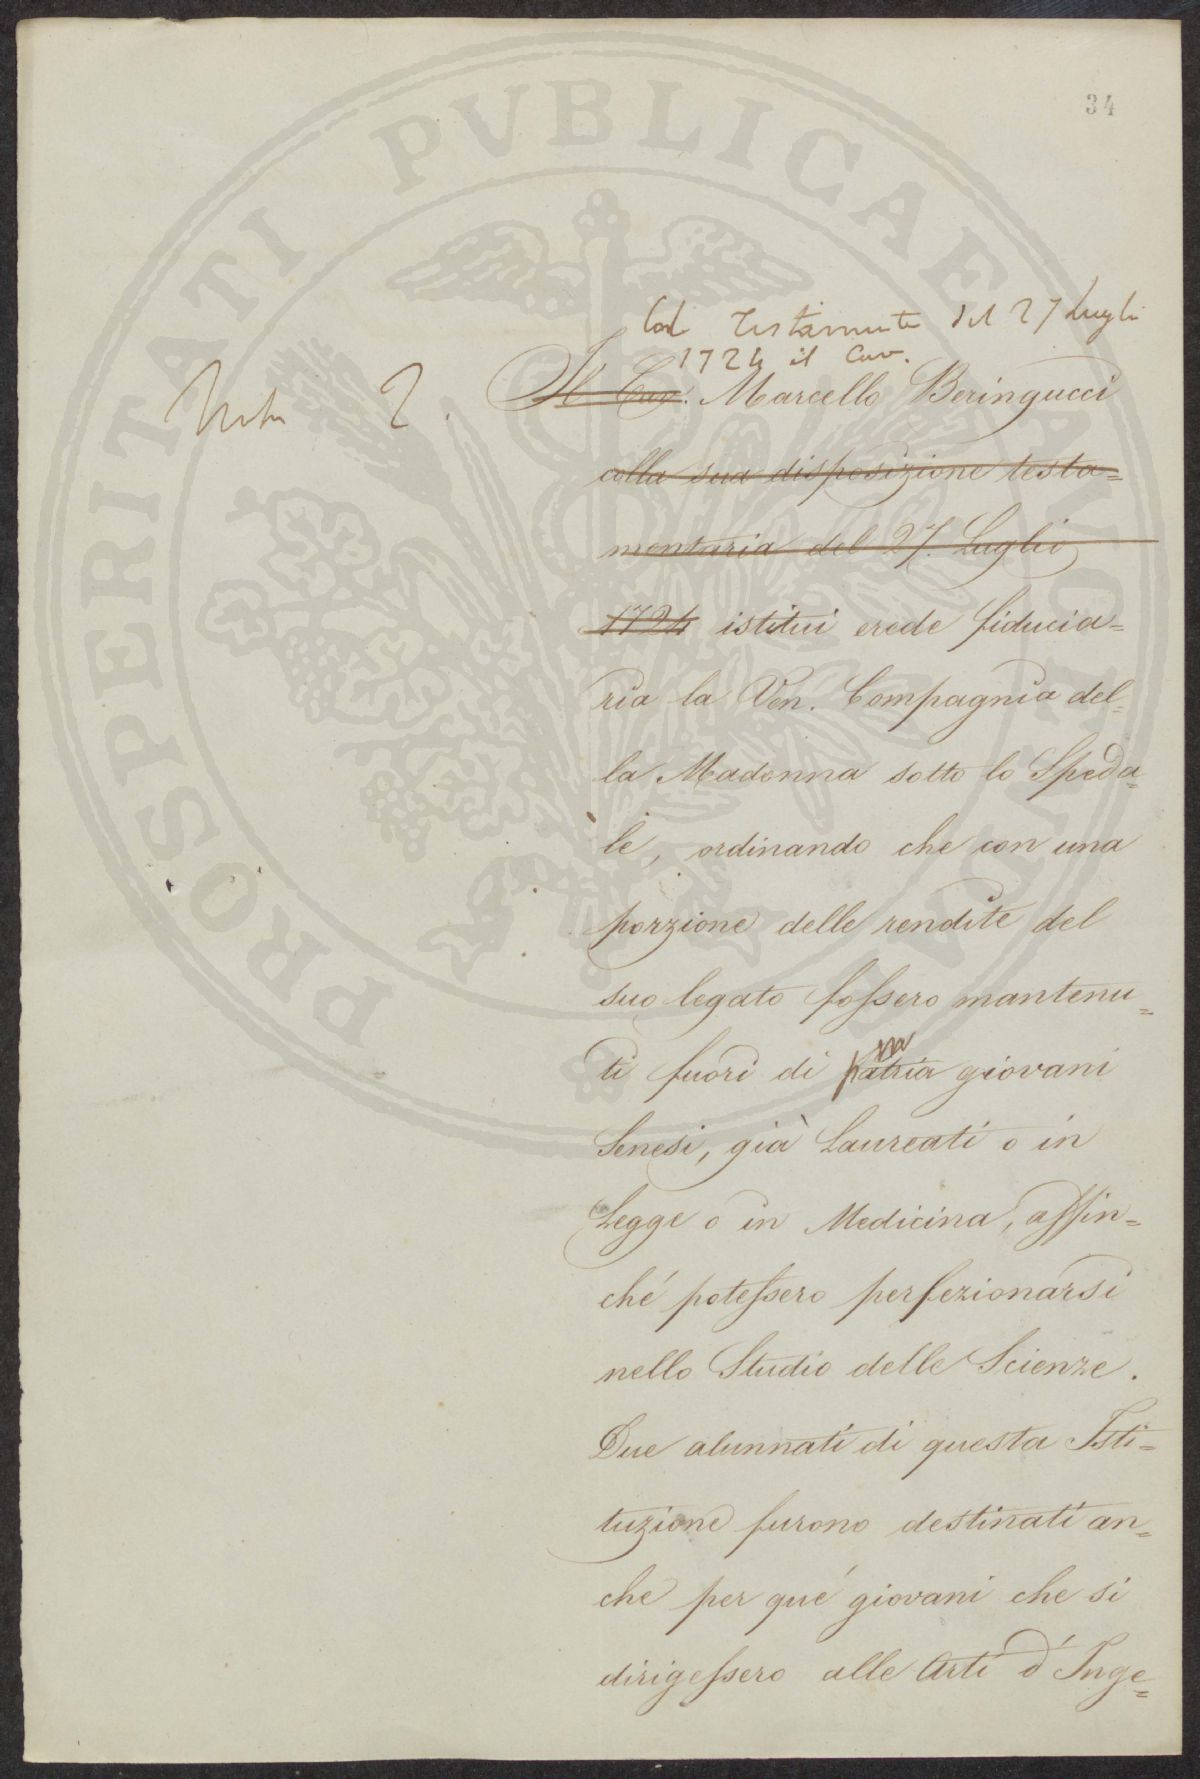 34
Col Testamento del 27 Luglio
1724 il Cav.
Nota 2.
Il Cav. Marcello Beringucci
colla sua disposizione testa=
mentaria del 27. Luglio
1724 istitui erede fiducia=
ria la Ven. Compagnia del=
la Madonna sotto lo Speda=
le, ordinando che con una
porzione delle rendite del
suo legato fossero mantenu=
ti fuori di patria giovani
Senesi, già Laureati o in
Legge o in Medicina, affin=
ché potessero perfezionarsi
nello Studio delle Scienze.
Due alunnati di questa Isti=
tuzione furono destinati an=
che per qué giovani che si
dirigessero alle Arti d'Inge=
PROSPERITATI PVBLICAE AVGENDAE